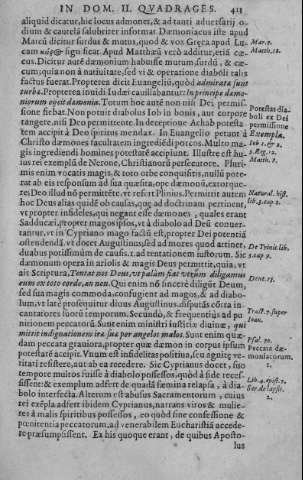 IN DOM. II. QUADRAGES. 421
aliquid dicatur, hic locus admonet, & ad tanti aduersarij o-
dium & cautelã salubriter informat Dæmoniacus iste apud
Marcũ dicitur surdus & mutus, quod & vox Græca apud Lu-
cam significat. Apud Matthæũ verò additur, etiã cæ-
cus. Dicitur autē dæmonium habuisse mutum surdũ, & cæ-
cum; quia non à natiuitate, sed vi & operatione diaboli talis
factus fuerat. Propterea dicit Euangelistã, quòd admirata sunt
turbæ. Propterea inuidi Iudæi causã habuerunt: In principe dæmo-
niorum eijcit dæmonia. Totum hoc autē non nisi Dei permis-
sione fiebat. Non potuit diabolus Iob in bonis, aut corpore
tangere, nisi Deo permittente. In deceptione Achab potesta-
tem accipit à Deo spiritus mendax. In Euangelio petant à
Christo dæmones facultatem ingrediēdi porcos. Multo ma-
gis ingrediendi homines potestatē accipiunt. Illustre est hu-
ius rei exemplũ de Nerone, Christianorũ persecutore. Pluri-
mis enim vocatis magis, & toto orbe conquisitis, nulli pote-
rat ab eis responsum ad sua quæsita, ope dæmonũ, extorque-
ri, Deo illud nõ permittēte, vt refert Plinius. Permittit autem
hoc Deus alias quidē ob causas, quę ad doctrinam pertinent,
vt propter infideles, qui negant esse dæmones, quales erant
Sadducæi, propter magos ipsos, vt à diabolo ad Deũ conuer-
tantur, vt in Cypriano mago factũ est, propter Dei potentiã
ostendendã, vt docet Augustinus, sed ad mores quod attinet,
duabus potissimũm de causis. 1. ad tentationem iustorum. Sic
dæmonum opera in ariolis & magis Deus permittit, quia, vt
ait Scriptura, Tentat nos Deus, vt palàm fiat vtrùm diligamus
eum ex toto corde, an non. Qui enim nõ sincerè diligũt Deum,
sed sua magis commoda, confugient ad magos, & ad diabo-
lum, vt latè prosequitur diuus Augustinus, disputãs cõtra in-
cantatores suorũ temporum. Secundò, & frequentiùs ad pu-
nitionem peccatorũ. Sunt enim ministri iustitiæ diuinæ, qui
mittit indignationem iræ suæ per angelos malos. Sunt enim quæ-
dam peccata grauiora, propter quæ dæmon in corpus ipsum
potestatē accipit. Vnum est infidelitas positiua, seu agnitę ve-
ritati resistere, aut ab ea recedere. Sic Cyprianus docet, suo
tempore multos fuisse à diabolo possessos, quòd à fide reces-
sissent: & exemplum adfert de quadã fœmina relapsa, à dia-
bolo interfecta. Alterum est abusus Sacramentorum, cuius
rei exēpla adfert ibidem Cyprianus, narrans viros & mulie-
res à malis spiritibus possessos, eo quòd sine confessione &
pœnitentia peccatorum, ad venerabilem Eucharistiã accede-
re præsumpsissent. Ex his quoque erant, de quibus Aposto-
lus
Mar. 7.
Matth. 12.
Potestas dia-
boli ex Dei
permissione.
Exempla.
Iob 1.
3. Reg. 22.
Matth. 8.
Natural. hist.
lib. 30. cap. 2.
De Trinit. lib.
3. cap. 9.
Deut. 13.
Tract. 7. super
Ioan.
Psal. 77.
Peccata dæ-
moniacorum.
1.
Lib. 4. epist. 2.
Ser. de lapsis.
2.